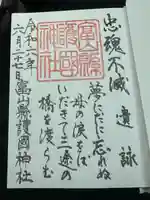 忠魂不滅 遺詠
夢にだに忘れぬ
母の涙をば
いだきて三途の
橋を渡らむ
令和二年
六月二十七日
富山縣護國神社